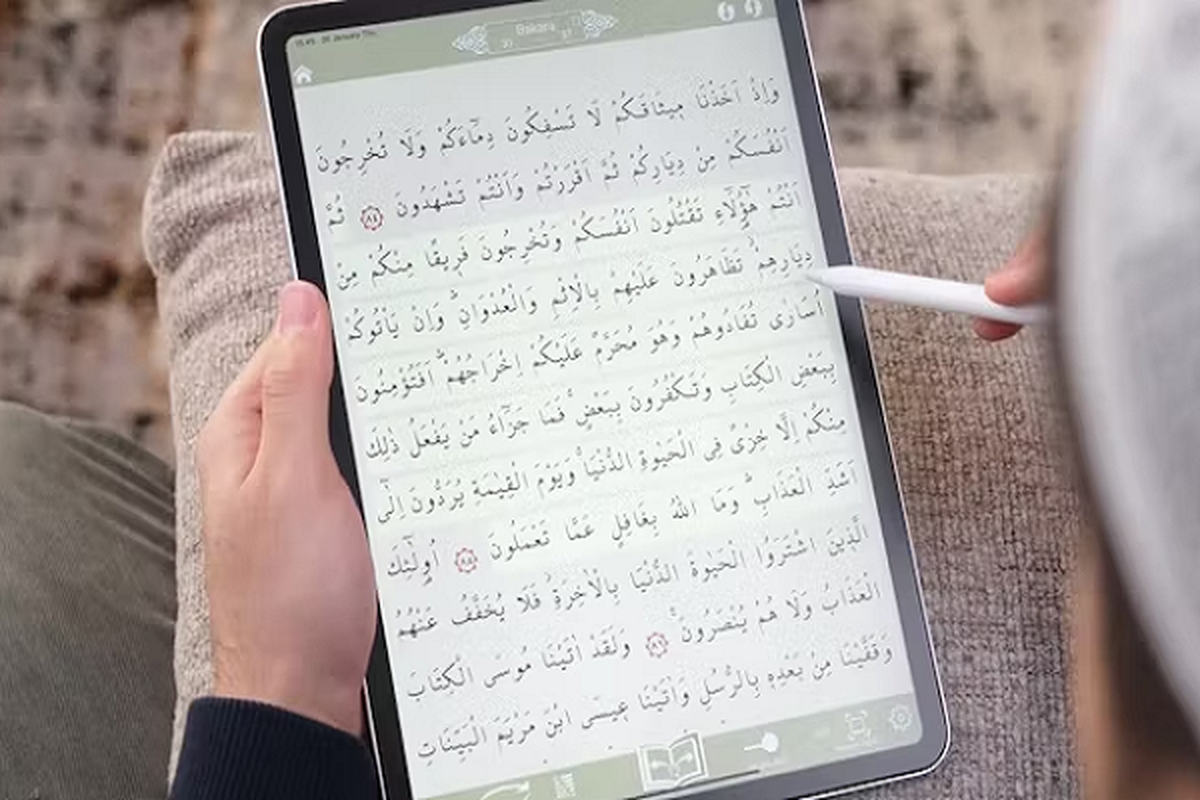 15:45 20 January Thu
Bakara
وَاِذْ اَخَذْنَا مٖيثَاقَكُمْ لَا تَسْفِكُونَ دِمَٓاءَكُمْ وَلَا تُخْرِجُونَ
اَنْفُسَكُمْ مِنْ دِيَارِكُمْ ثُمَّ اَقْرَرْتُمْ وَاَنْتُمْ تَشْهَدُونَ ﴿٨٤﴾ ثُمَّ
اَنْتُمْ هٰٓؤُ۬لَٓاءِ تَقْتُلُونَ اَنْفُسَكُمْ وَتُخْرِجُونَ فَرٖيقًا مِنْكُمْ مِنْ
دِيَارِهِمْۘ تَظَاهَرُونَ عَلَيْهِمْ بِالْاِثْمِ وَالْعُدْوَانِۜ وَاِنْ يَاْتُوكُمْ
اُسَارٰى تُفَادُوهُمْ وَهُوَ مُحَرَّمٌ عَلَيْكُمْ اِخْرَاجُهُمْۜ اَفَتُؤْمِنُونَ
بِبَعْضِ الْكِتَابِ وَتَكْفُرُونَ بِبَعْضٍۚ فَمَا جَزَٓاءُ مَنْ يَفْعَلُ ذٰلِكَ
مِنْكُمْ اِلَّا خِزْىٌ فِى الْحَيٰوةِ الدُّنْيَاۚ وَيَوْمَ الْقِيٰمَةِ يُرَدُّونَ اِلٰٓى
اَشَدِّ الْعَذَابِۜ وَمَا اللّٰهُ بِغَافِلٍ عَمَّا تَعْمَلُونَ ﴿٨٥﴾ اُو۬لٰٓئِكَ
الَّذٖينَ اشْتَرَوُا الْحَيٰوةَ الدُّنْيَا بِالْاٰخِرَةِۘ فَلَا يُخَفَّفُ عَنْهُمُ
الْعَذَابُ وَلَا هُمْ يُنْصَرُونَ۟ ﴿٨٦﴾ وَلَقَدْ اٰتَيْنَا مُوسَى الْكِتَابَ
وَقَفَّيْنَا مِنْ بَعْدِهٖ بِالرُّسُلِ وَاٰتَيْنَا عٖيسَى ابْنَ مَرْيَمَ الْبَيِّنَاتِ